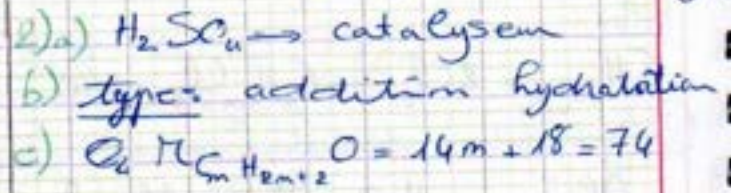 2)a) H₂SO₄ → catalyseur
b) type: addition hydratation
c) On M CnH2n+2O = 14n + 18 = 74